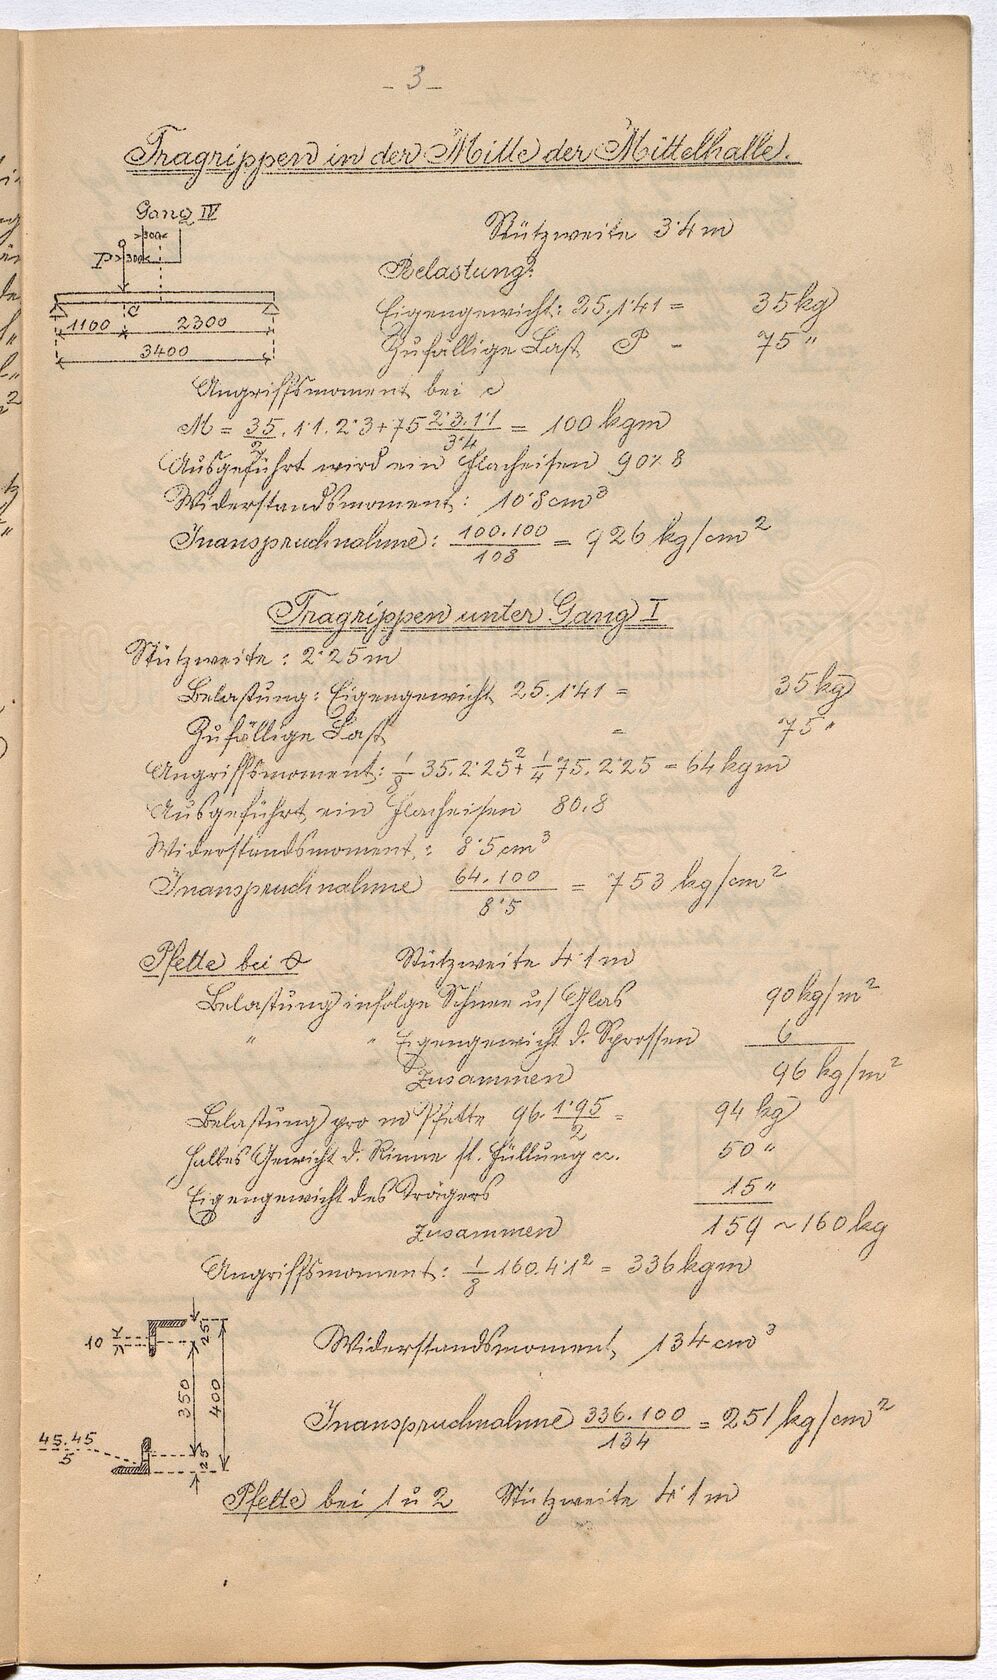 - 3 -
Tragrippen in der Mitte der Mittelhalle.
Gang IV
300
P 300
c
1100 2300
3400
Stützweite 3·4 m
Belastung:
Eigengewicht: 25.1·41 = 35 kg
Zufällige Last P - 75 "
Angriffsmoment bei c
M = 35/2 . 1·1 . 2·3 + 75 2·3.1·1/3·4 = 100 kgm
Ausgeführt wird ein Flacheisen 90 x 8
Widerstandsmoment: 10·8 cm³
Inanspruchnahme: 100.100/108 = 926 kg/cm²
Tragrippen unter Gang I
Stützweite: 2·25 m
Belastung: Eigengewicht 25.1·41 = 35 kg
Zufällige Last = 75 "
Angriffsmoment: 1/8 35.2·25² + 1/4 75.2·25 = 64 kgm
Ausgeführt ein Flacheisen 80.8
Widerstandsmoment: 8·5 cm³
Inanspruchnahme 64.100/8·5 = 753 kg/cm²
Pfette bei 0 Stützweite 4·1 m
Belastung infolge Schnee u/ Glas 90 kg/m²
" " Eigengewicht d. Sprossen 6
Zusammen 96 kg/m²
Belastung pro m Pfette 96. 1·95/2 = 94 kg
halbes Gewicht d. Rinne s/. Füllung &c. 50 "
Eigengewicht des Trägers 15 "
Zusammen 159 ~ 160 kg
Angriffsmoment: 1/8 160.4·1² = 336 kgm
10 25
350 400
45.45/5 25
Widerstandsmoment 134 cm³
Inanspruchnahme 336.100/134 = 251 kg/cm²
Pfette bei 1 u 2 Stützweite 4·1 m